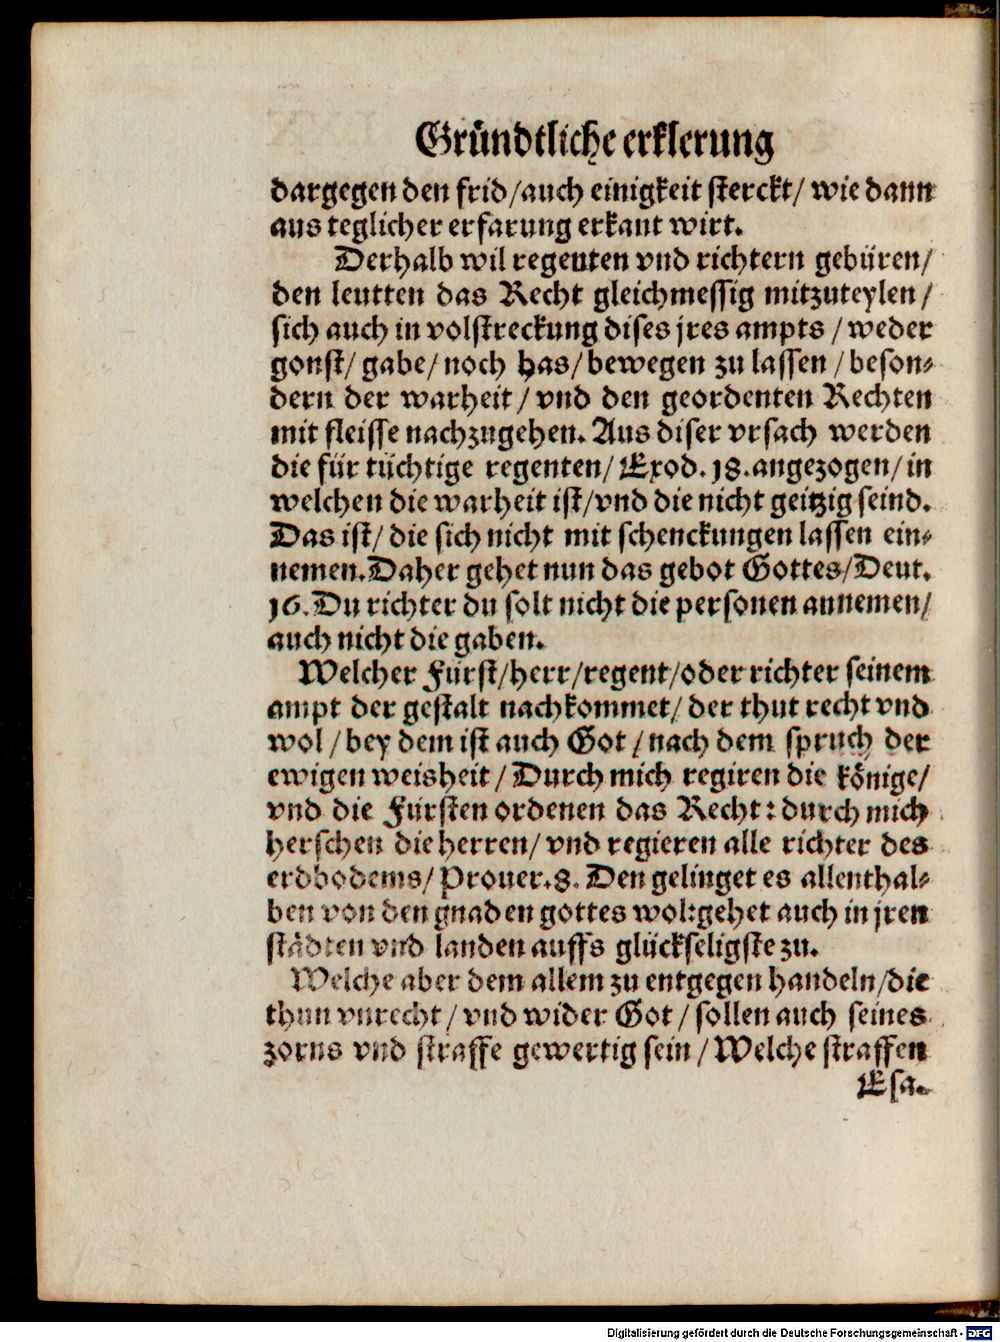 Gründtliche erklerung
dargegen den frid/auch einigkeit sterckt/ wie dann
aus teglicher erfarung erkant wirt.
Derhalb wil regenten vnd richtern gebüren/
den leutten das Recht gleichmessig mitzuteylen/
sich auch in volstreckung dises jres ampts / weder
gonst/ gabe/ noch has/ bewegen zu lassen / beson⸗
dern der warheit / vnd den geordenten Rechten
mit fleisse nachzugehen. Aus diser vrsach werden
die für tüchtige regenten/ Exod. 18. angezogen/ in
welchen die warheit ist/vnd die nicht geitzig seind.
Das ist/ die sich nicht mit schenckungen lassen ein⸗
nemen. Daher gehet nun das gebot Gottes/Deut.
16. Du richter du solt nicht die personen annemen/
auch nicht die gaben.
Welcher Fürst/herr/regent/oder richter seinem
ampt der gestalt nachkommet/ der thut recht vnd
wol / bey dem ist auch Got / nach dem spruch der
ewigen weisheit / Durch mich regiren die könige/
vnd die Fürsten ordenen das Recht: durch mich
herschen die herren/ vnd regieren alle richter des
erdbodems/ Prouer. 8. Den gelinget es allenthal⸗
ben von den gnaden gottes wol: gehet auch in jren
städten vnd landen auffs glückseligste zu.
Welche aber dem allem zu entgegen handeln/die
thun vnrecht / vnd wider Got / sollen auch seines
zorns vnd straffe gewertig sein / Welche straffen
Esa.
Digitalisierung gefördert durch die Deutsche Forschungsgemeinschaft - DFG